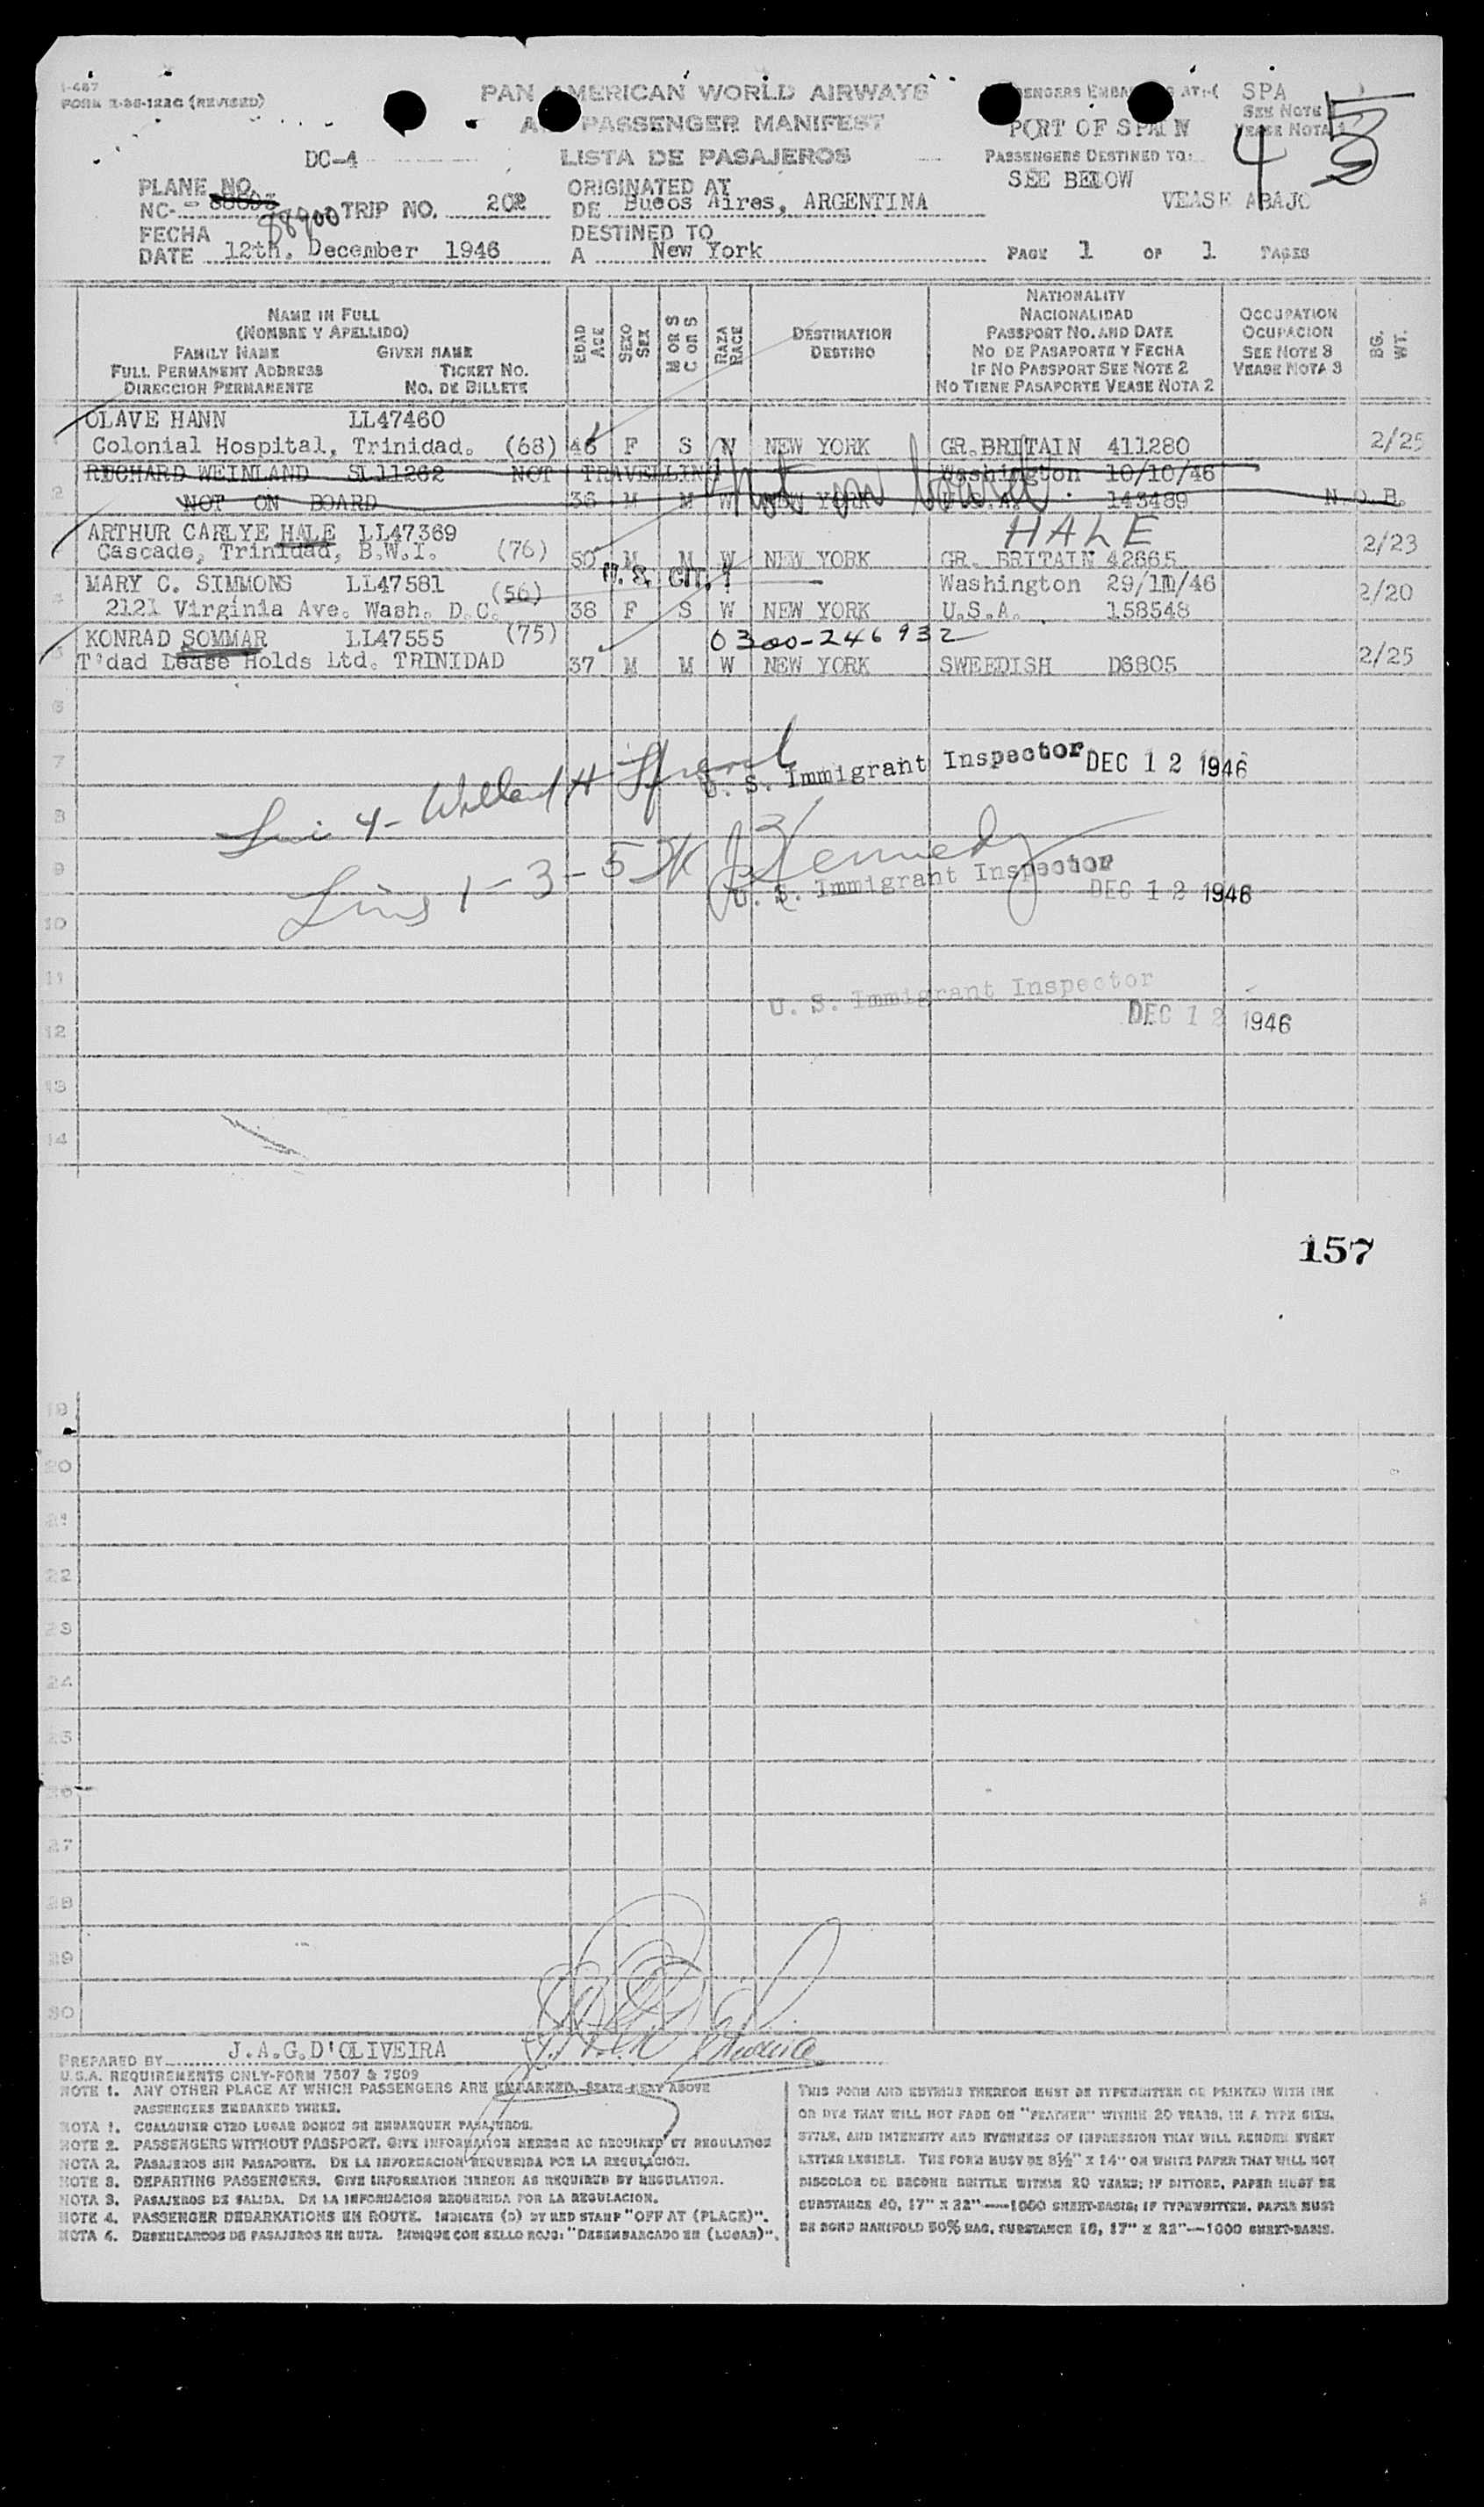 I-487
PAN AMERICAN WORLD AIRWAYS
PASSENGERS EMBARKED AT:-( SPA )
FORM (REVISED)
SEE NOTE 1
AIR PASSENGER MANIFEST
PORT OF SPAIN VEASE NOTA 1
DC-4
LISTA DE PASAJEROS
PASSENGERS DESTINED TO:
4 5
3
SEE BELOW
VEASE ABAJO
PLANE NO.
NC- 88900 TRIP NO. 202
ORIGINATED AT
DE Bueos Aires, ARGENTINA
FECHA
DATE 12th. December 1946
DESTINED TO
A New York
PAGE 1 OF 1 PAGES
NAME IN FULL
(NOMBRE Y APELLIDO)
FAMILY NAME GIVEN NAME
FULL PERMANENT ADDRESS TICKET NO.
DIRECCION PERMANENTE NO. DE BILLETE
EDAD AGE
SEXO SEX
M OR S
C OR S
RAZA RACE
DESTINATION
DESTINO
NATIONALITY
NACIONALIDAD
PASSPORT NO. AND DATE
NO DE PASAPORTE Y FECHA
IF NO PASSPORT SEE NOTE 2
NO TIENE PASAPORTE VEASE NOTA 2
OCCUPATION
OCUPACION
SEE NOTE 3
VEASE NOTA 3
BG. WT.
OLAVE HANN LL47460
Colonial Hospital, Trinidad. (68) 46 F S W NEW YORK GR.BRITAIN 411280 2/25
RICHARD WEINLAND SL11262 NOT TRAVELLING Washington 10/10/46
2 NOT ON BOARD 36 M M W NEW YORK U.S.A. 143489 N.O.B.
Not on board
ARTHUR CARLYE HALE LL47369 HALE
Cascade, Trinidad, B.W.I. (76) 50 M M W NEW YORK GR. BRITAIN 42665 2/23
U. S. CIT.
MARY C. SIMMONS LL47581 (56) Washington 29/11/46
4 2121 Virginia Ave. Wash. D.C. 38 F S W NEW YORK U.S.A. 158548 2/20
KONRAD SOMMAR LL47555 (75) 0300-246932
5 T'dad Lease Holds Ltd. TRINIDAD 37 M M W NEW YORK SWEEDISH D6805 2/25
6
7
U. S. Immigrant Inspector DEC 12 1946
8
9
Lins 1-3-5 Kennedy
U. S. Immigrant Inspector
DEC 12 1946
10
11
U. S. Immigrant Inspector
DEC 12 1946
12
13
14
157
19
20
21
22
23
24
25
26
27
28
29
30
PREPARED BY J.A.G.D'OLIVEIRA
U.S.A. REQUIREMENTS ONLY-FORM 7507 & 7509
NOTE 1. ANY OTHER PLACE AT WHICH PASSENGERS ARE EMBARKED, STATE NEXT ABOVE
PASSENGERS EMBARKED THERE.
NOTA 1. CUALQUIER OTRO LUGAR DONDE SE EMBARQUEN PASAJEROS.
NOTE 2. PASSENGERS WITHOUT PASSPORT, GIVE INFORMATION HEREON AS REQUIRED BY REGULATION
NOTA 2. PASAJEROS SIN PASAPORTE. DE LA INFORMACION REQUERIDA POR LA REGULACION.
NOTE 3. DEPARTING PASSENGERS. GIVE INFORMATION HEREON AS REQUIRED BY REGULATION.
NOTA 3. PASAJEROS DE SALIDA. DE LA INFORMACION REQUERIDA POR LA REGULACION.
NOTE 4. PASSENGER DEBARKATIONS EN ROUTE. INDICATE (D) BY RED STAMP "OFF AT (PLACE)".
NOTA 4. DESEMBARCOS DE PASAJEROS EN RUTA. INDIQUE CON SELLO ROJO: "DESEMBARCADO EN (LUGAR)".
THIS FORM AND ENTRIES THEREON MUST BE TYPEWRITTEN OR PRINTED WITH INK
OR DYE THAT WILL NOT FADE OR "FEATHER" WITHIN 20 YEARS, IN A TYPE SIZE,
STYLE, AND INTENSITY AND EVENNESS OF IMPRESSION THAT WILL RENDER EVERY
LETTER LEGIBLE. THE FORM MUST BE 8½" X 14" ON WHITE PAPER THAT WILL NOT
DISCOLOR OR BECOME BRITTLE WITHIN 20 YEARS; IF DITTOED, PAPER MUST BE
SUBSTANCE 40, 17" X 22"—1000 SHEET-BASIS; IF TYPEWRITTEN, PAPER MUST
BE BOND MANIFOLD 50% RAG, SUBSTANCE 16, 17" X 22"—1000 SHEET-BASIS.